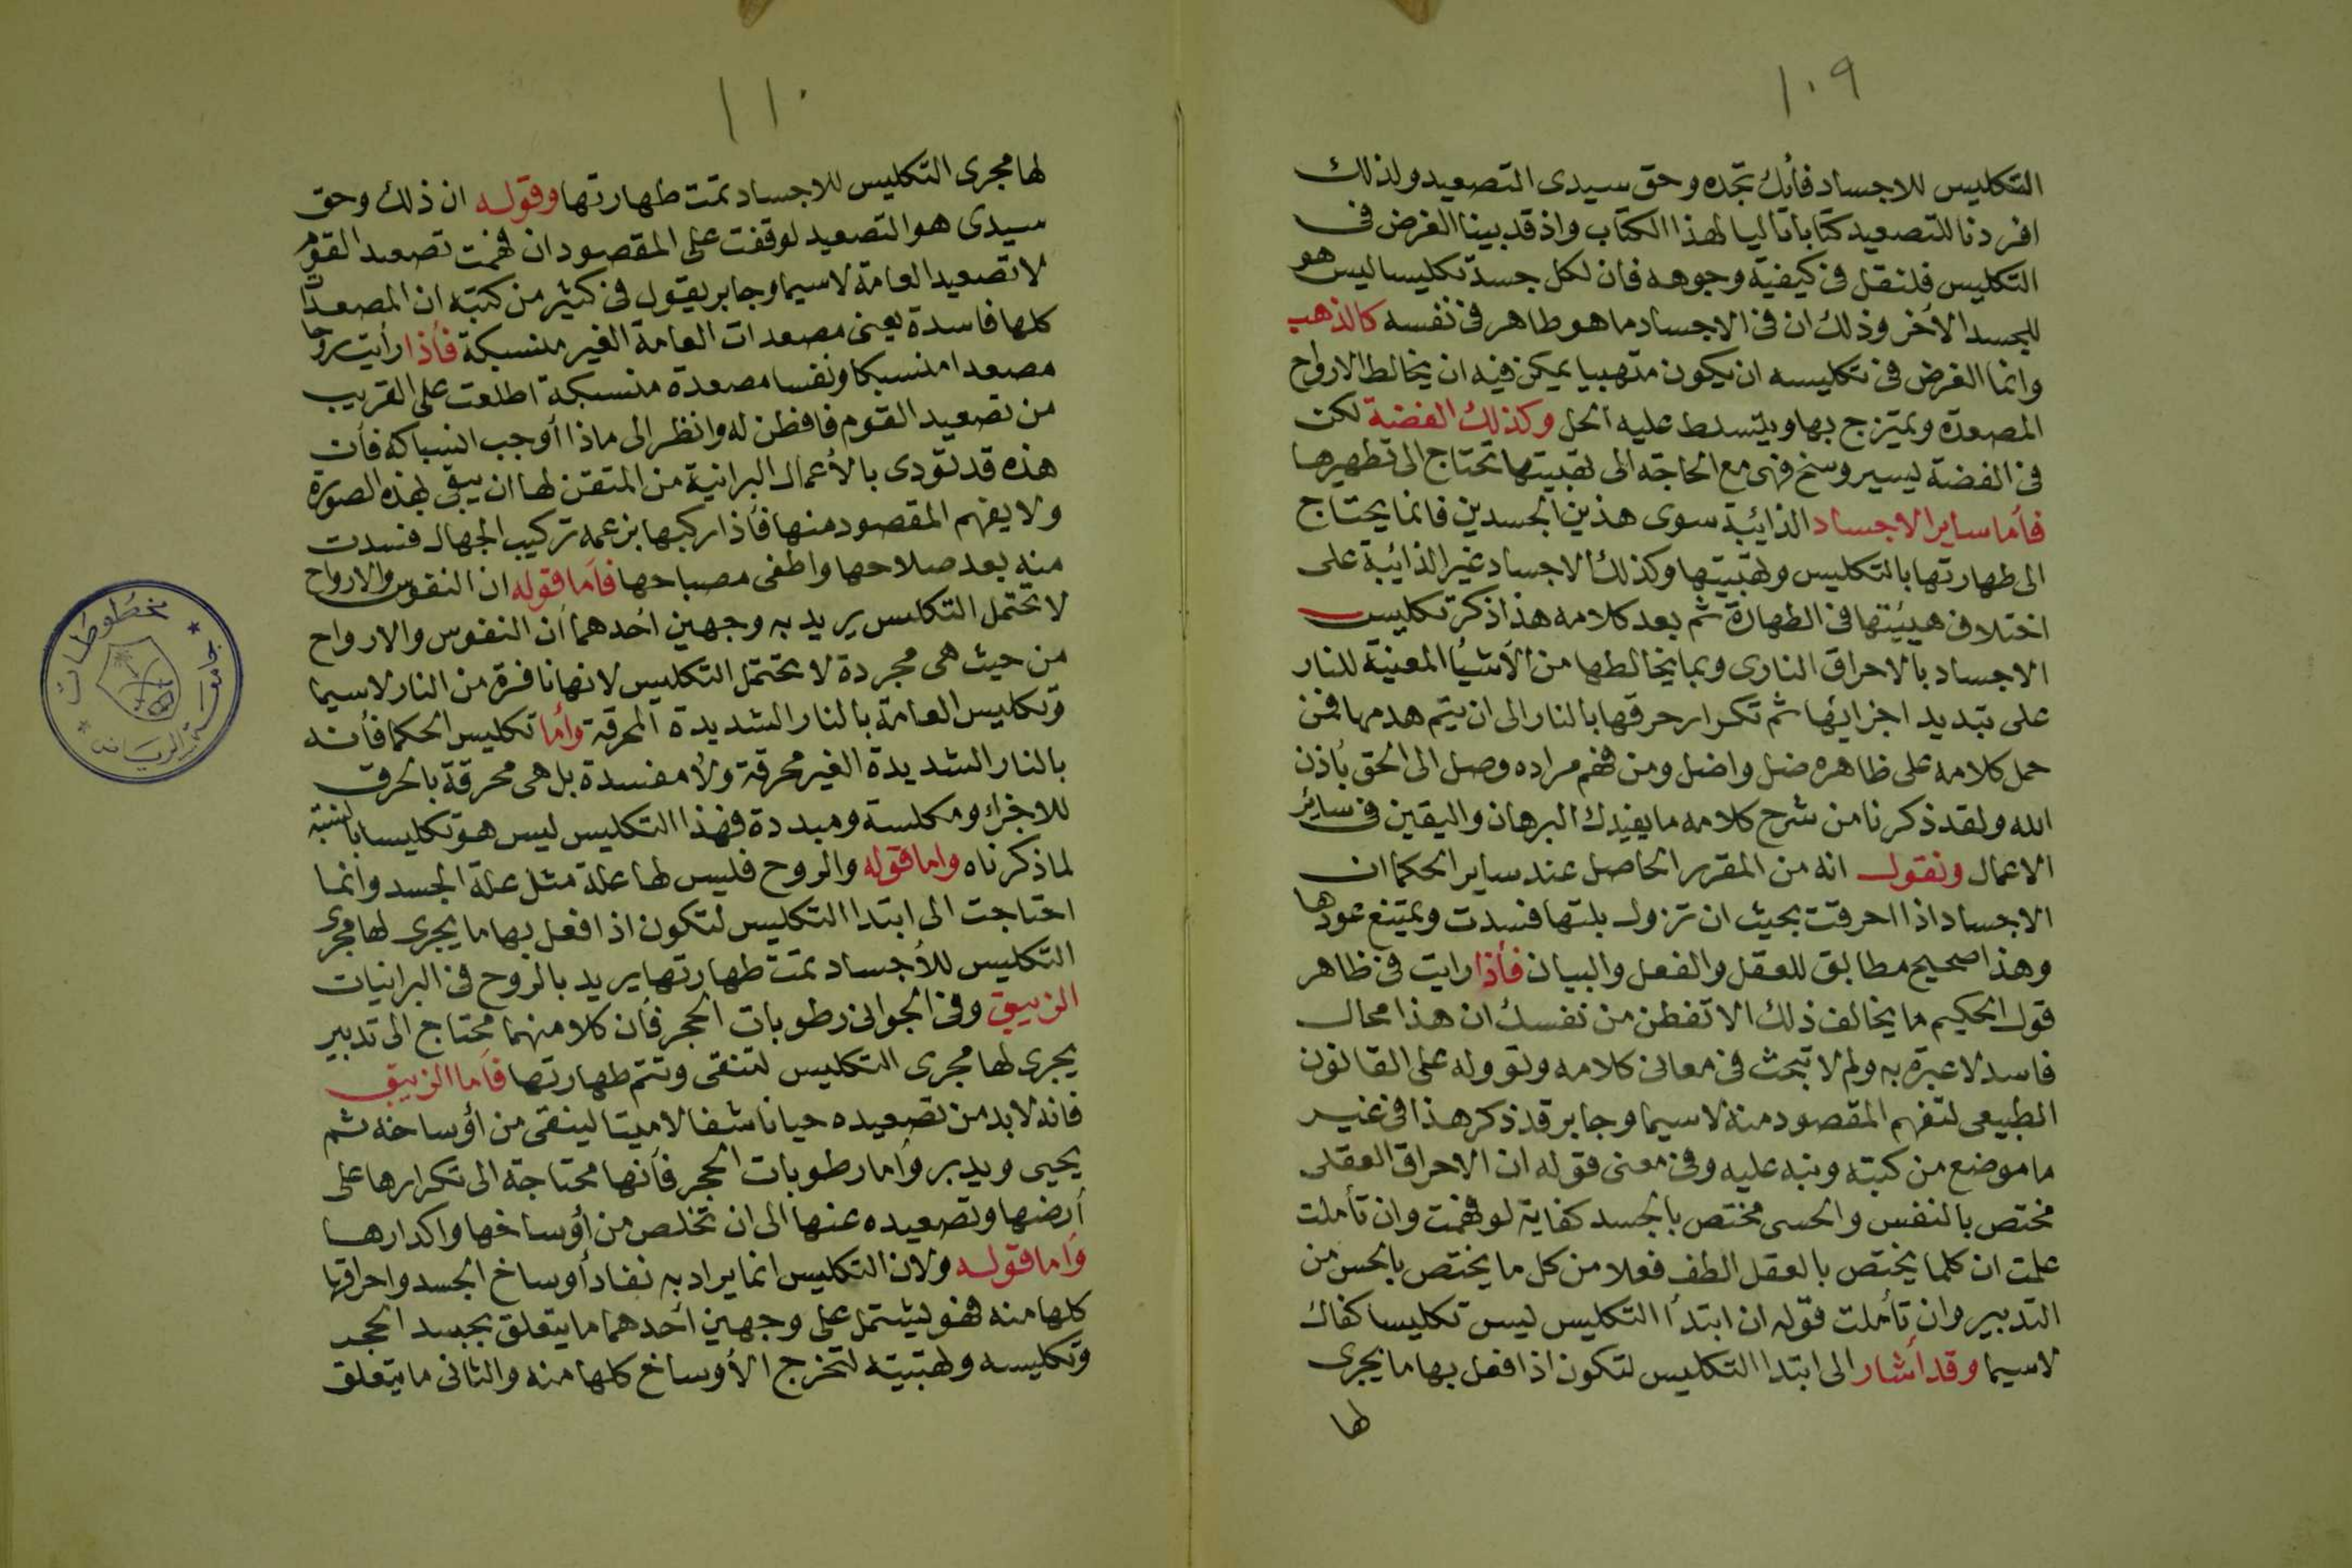 ١٠٩
التكليس للاجساد فأنك تجده وحق سيدى التصعيد ولذلك
افردنا للتصعيد كتابا تاليا لهذا الكتاب واذ قد بينا الغرض فى
التكليس فلنقل فى كيفية وجوهه فان لكل جسد تكليسا ليس هو
للجسد الأخر وذلك ان فى الاجساد ما هو طاهر فى نفسه كالذهب
وانما الغرض فى تكليسه ان يكون متهبيا يمكن فيه ان يخالط الارواح
المصعدة ويمتزج بها ويتسلط عليه الحل وكذلك الفضة لكن
فى الفضة ليسير وسخ فهى مع الحاجة الى تهبيتها تحتاج الى تطهيرها
فأما ساير الاجساد الذائبة سوى هذين الجسدين فانما يحتاج
الى طهارتها بالتكليس وتهبيتها وكذلك الاجساد غير الذائبة على
اختلاف هيئتها فى الطهارة ثم بعد كلامه هذا ذكر تكليس
الاجساد بالاحراق النارى وبما يخالطها من الأشيأ المعنية للنار
على تبديد اجزائها ثم تكرار حرقها بالنار الى ان يتم هدمها فمن
حمل كلامه على ظاهره ضل واضل ومن فهم مراده وصل الى الحق بأذن
الله ولقد ذكرنا من شرح كلامه ما يفيدك البرهان واليقين فى سائر
الاعمال ونقول انه من المقرر الحاصل عند ساير الحكما ان
الاجساد اذا احرقت بحيث ان تزول بلتها فسدت ويمتنع عودها
وهذا صحيح مطابق للعقل والفعل والبيان فأذا رايت فى ظاهر
قول الحكيم ما يخالف ذلك الا تفطن من نفسك ان هذا محال
فاسد لا عبرة به ولم لا تبحث فى معانى كلامه وتووله على القانون
الطبيعى لتفهم المقصود منه لاسيما وجابر قد ذكر هذا فى غير
ما موضع من كتبه ونبه عليه وفى معنى قوله ان الاحراق العقلى
مختص بالنفس والحسى مختص بالجسد كفاية لو فهمت وان تأملت
علمت ان كلما يختص بالعقل الطف فعلا من كل ما يختص بالحس من
التدبير وان تأملت قوله ان ابتدأ التكليس ليس تكليسا كفاك
لاسيما وقد أشار الى ابتدا التكليس لتكون اذا فعل بها ما يجرى
لها
١١٠
لها مجرى التكليس للاجساد تمت طهارتها وقوله ان ذلك وحق
سيدى هو التصعيد لوقفت على المقصود ان فهمت تصعيد القوم
لا تصعيد العامة لاسيما وجابر يقول فى كثير من كتبه ان المصعدات
كلها فاسدة يعنى مصعدات العامة الغير منسبكة فأذا رأيت روحا
مصعدا منسبكا ونفسا مصعدة منسبكة اطلعت على القريب
من تصعيد القوم فافطن له وانظر الى ماذا أوجب انسباكه فأن
هذه قد تؤدى بالأعمال البرانية من المتقن لها ان يبقى بهذه الصورة
ولا يفهم المقصود منها فأذا ركبها بزعمه تركيب الجهال فسدت
منه بعد صلاحها واطفى مصباحها فأما قوله ان النفوس والارواح
لا تحتمل التكليس يريد به وجهين أحدهما أن النفوس والارواح
من حيث هى مجردة لا تحتمل التكليس لانها نافرة من النار لاسيما
وتكليس العامة بالنار الشديدة المحرقة وأما تكليس الحكما فأنه
بالنار الشديدة الغير محرقة ولا مفسدة بل هى محرقة بالحرق
للاجزاء ومكلسة ومبددة فهذا التكليس ليس هو تكليسا بالنسبة
لما ذكرناه واما قوله والروح فليس لها علة مثل علة الجسد وانما
احتاجت الى ابتدا التكليس لتكون اذا فعل بها ما يجرى لها مجرى
التكليس للأجساد تمت طهارتها يريد بالروح فى البرانيات
الزيبق وفى الجوانى رطوبات الحجر فأن كلا منهما محتاج الى تدبير
يجرى لها مجرى التكليس لتنقى وتتم طهارتها فأما الزيبق
فانه لابد من تصعيده حيا ناشفا لا ميتا لينقى من أوساخه ثم
يحيى ويدبر وأما رطوبات الحجر فأنها محتاجة الى تكرارها على
أرضها وتصعيده عنها الى ان تخلص من أوساخها واكدارها
وأما قوله ولان التكليس انما يراد به نفاد أوساخ الجسد واحراقها
كلها منه فهو ليشتمل على وجهين أحدهما ما يتعلق بجسد الحجر
وتكليسه وتهبيته لتخرج الأوساخ كلها منه والثانى ما يتعلق
جامعة الرياض
مخطوطات